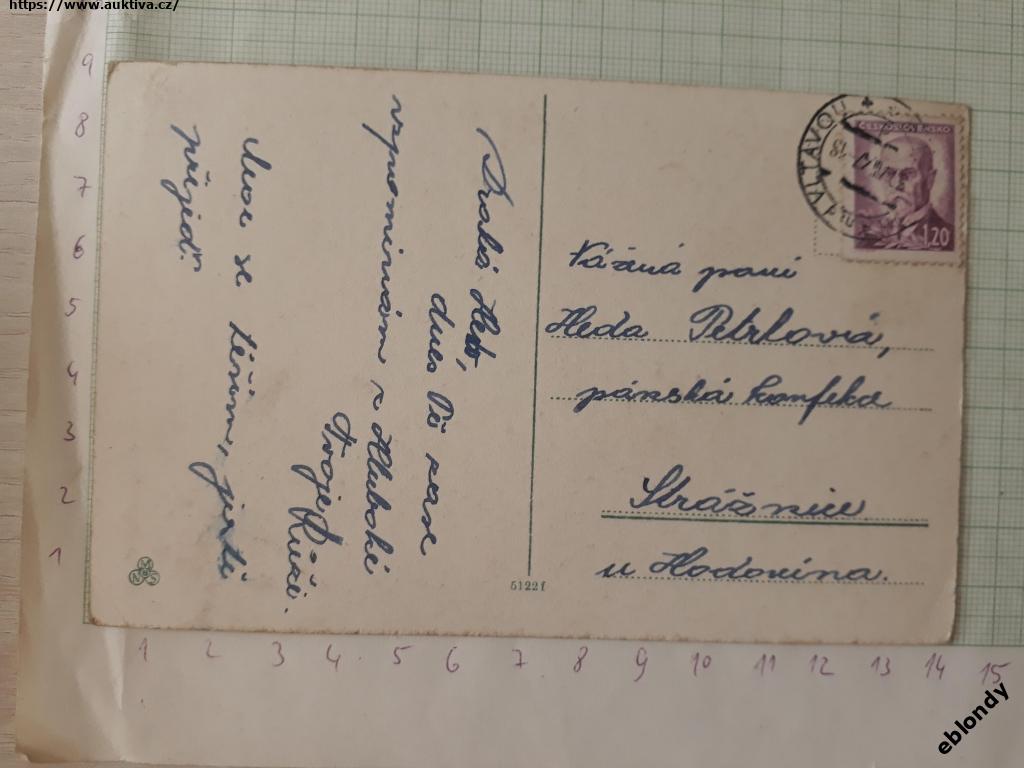 https://www.auktiva.cz/
Drahá Heď,
dnes Tě zase
vzpomínám z Hluboké
Tvoje
Moc se těším, jistě
přijeď.
ČESKOSLOVENSKO
1.20
VLTAVOU
Vážná paní
Heda Petrlová,
pánská konfekce
Strážnice
u Hodonína.
51221
M
N S
9
8
7
6
5
4
3
2
1
1 2 3 4 5 6 7 8 9 10 11 12 13 14 15
eblondy